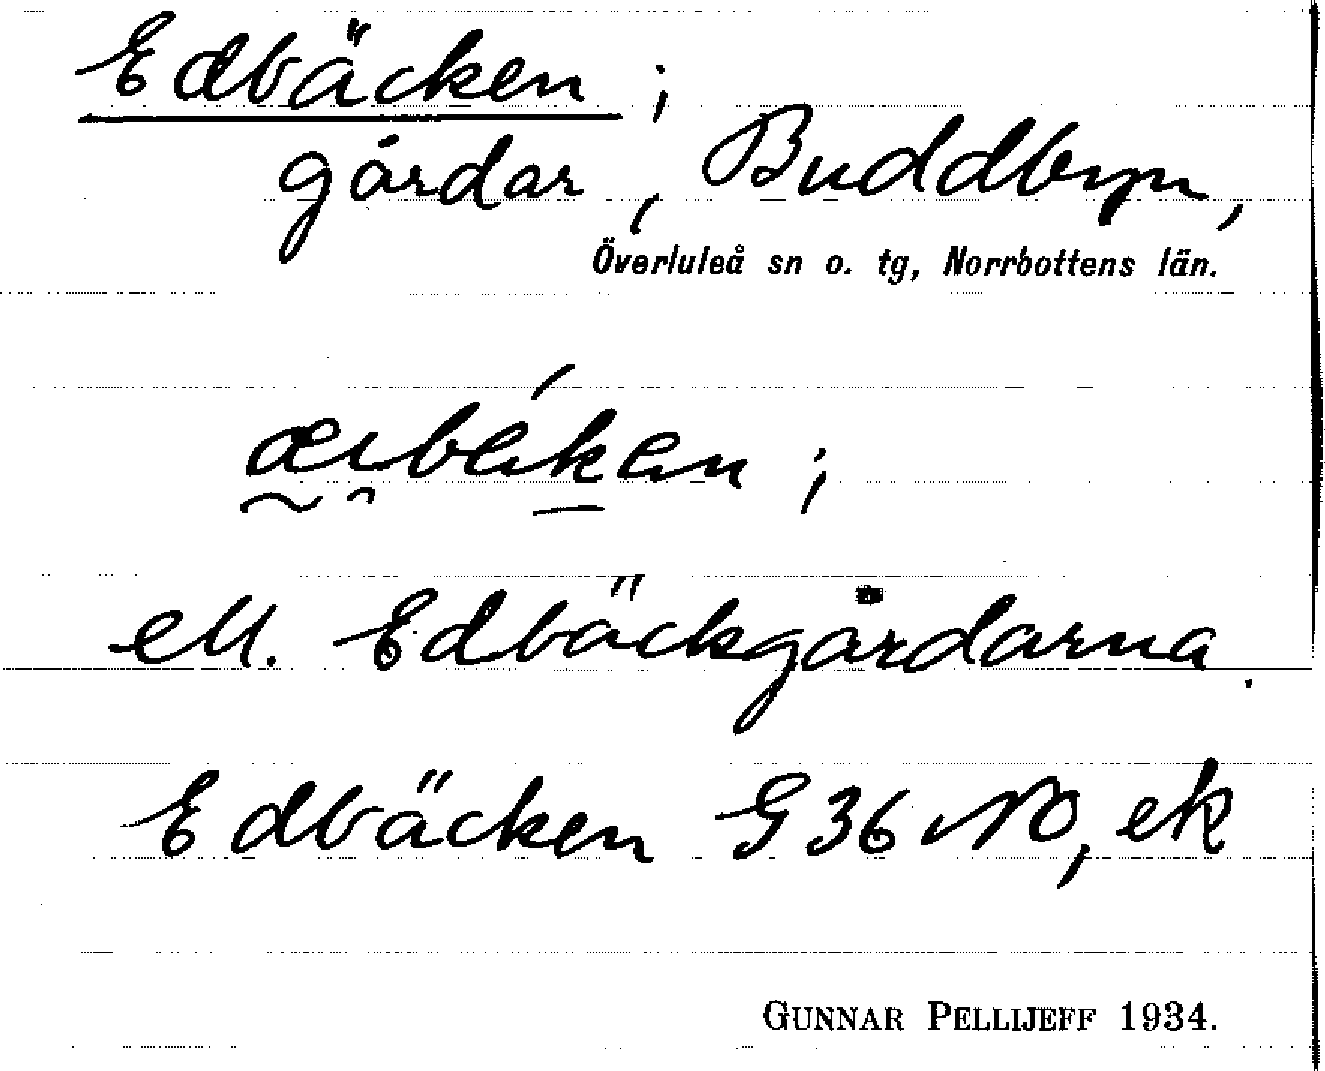 Edbäcken;
gårdar, Buddbyn,
Överluleå sn o. tg, Norrbottens län.
ell. Edbäckgårdarna.
Edbäcken G36 NO, ek
GUNNAR PELLIJEFF 1934.